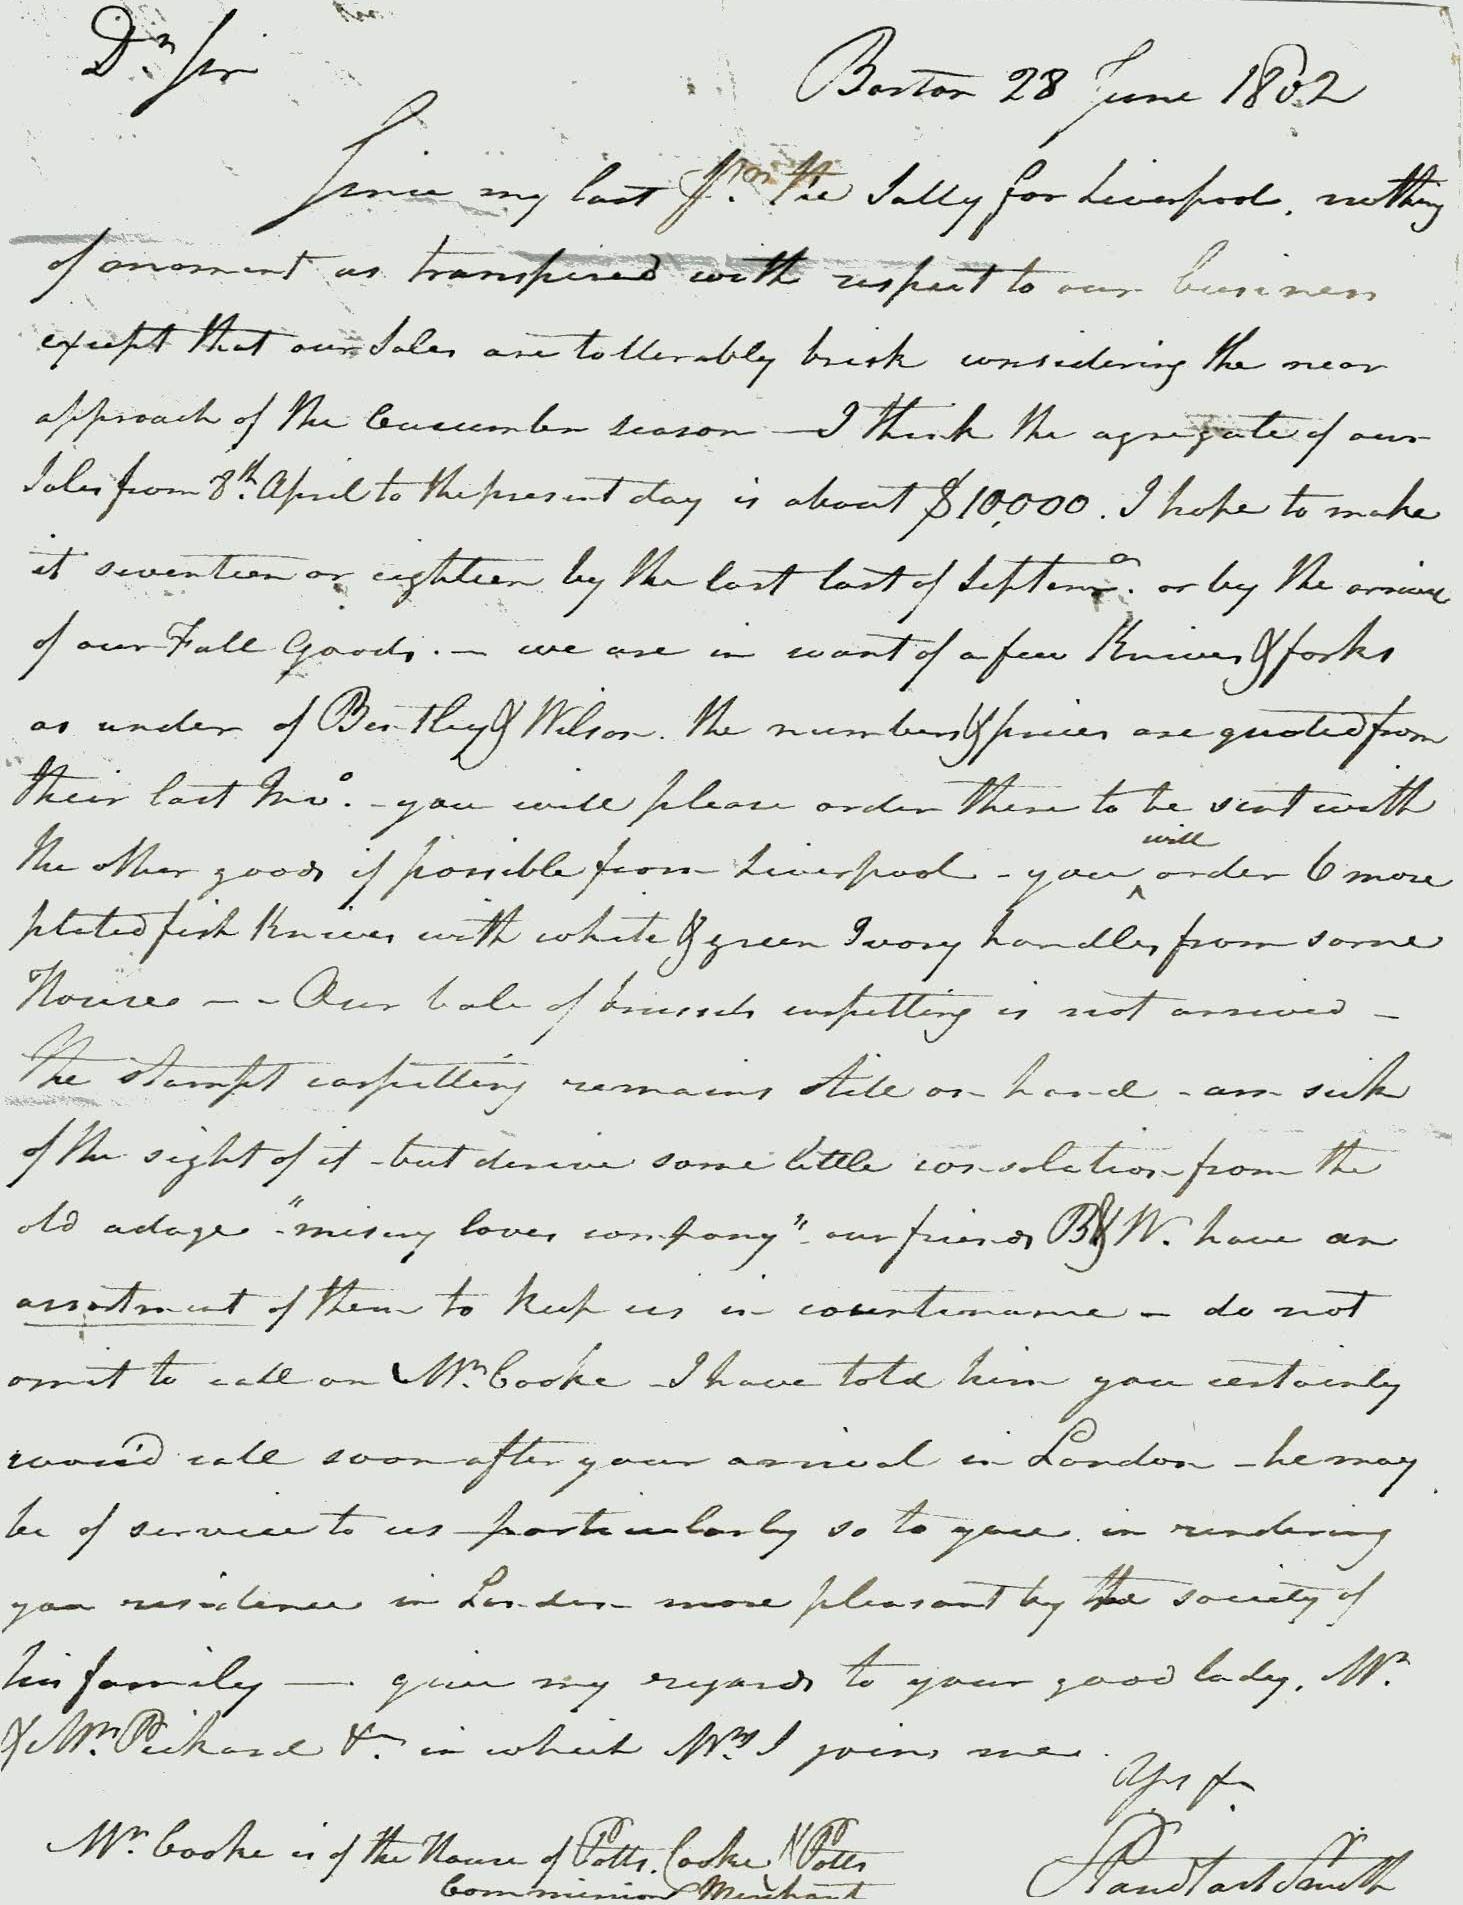 Dr. Sir
Boston 28 June 1802
Since my last pr. the Sally for Liverpool, nothing
of moment as transpired with respect to our business
except that our Sales are tollerably brisk considering the near
approach of the Cucumber season — I think the agregate of our
Sales from 8th. April to the present day is about $10,000. I hope to make
it seventeen or eighteen by the last last of Septemr. or by the arrival
of our Fall Goods. — we are in want of a few Knives & forks
as under of Bentley & Wilson. the numbers & prices are quoted from
their last Invo. - you will please order these to be sent with
the other goods if possible from Liverpool - you will order 6 more
plated fish Knives with white & green Ivory handles from same
House - - Our bale of brussels carpetting is not arrived -
The stampt carpetting remains still on hand - am sick
of the sight of it - but derive some little consolation from the
old adage - "misery loves company" - our friends B & W. have an
assortment of them to keep us in countenance - do not
omit to call on Mr. Cooke - I have told him you certainly
wou'd call soon after your arrival in London - he may
be of service to us particularly so to you in rendering
you residence in London more pleasant by the society of
his family — . give my regards to your good lady, Mr.
& Mrs. Pickard &c. in which Mrs. S joins me.
Yrs &c
Mr. Cooke is of the House of Potts, Cooke & Potts
Commission Merchant
Smith